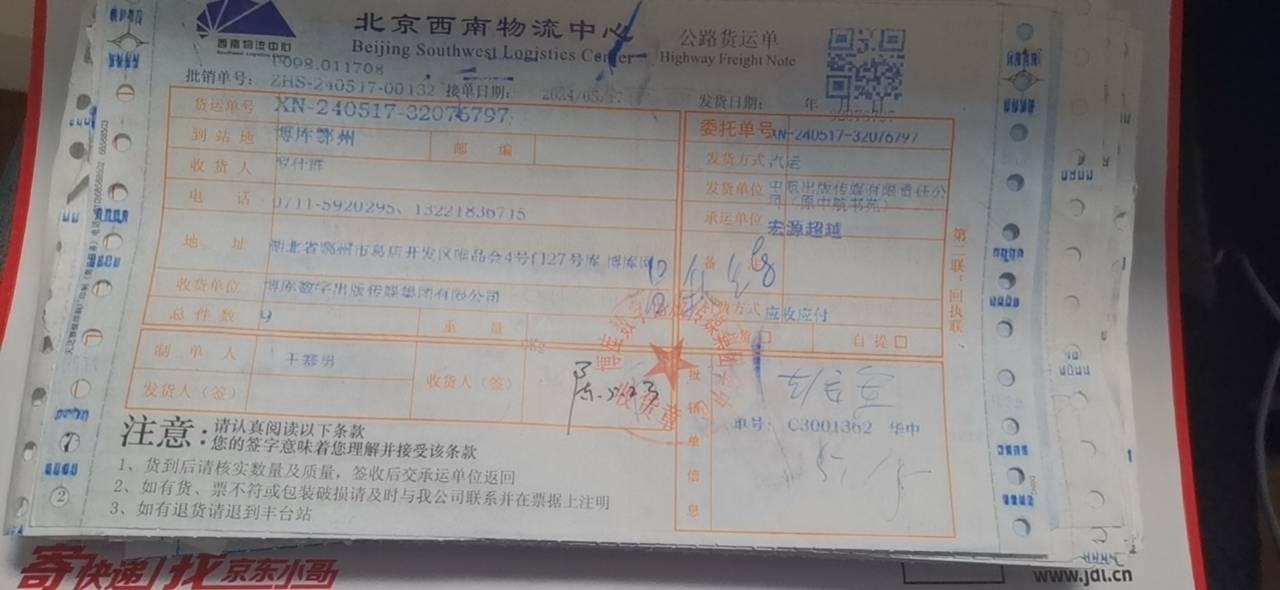 西南物流中心
北京西南物流中心
Beijing Southwest Logistics Center
公路货运单
Highway Freight Note
0098.011708
批销单号: ZHS-240517-00132 接单日期: 2024/05/17
发货日期: 年 月 日
货运单号 XN-240517-32076797
委托单号 XN-240517-32076797
到站地 博库鄂州 邮编
发货方式 汽运
收货人
发货单位 中版出版传媒有限责任公司(原中航书苑)
电话 0711-5920295、13221836715
承运单位 宏源超越
地址 湖北省鄂州市葛店开发区唯品会4号门27号库 博库网
备注
收货单位 博库数字出版传媒集团有限公司
付费方式 应收应付
总件数 9 重量 0Kg
自提 □
制单人 王慕明
收货人(签)
发货人(签)
批销单信息
单号: C3001362 华中
第二联:回执联
收货章
注意:请认真阅读以下条款
您的签字意味着您理解并接受该条款
1、货到后请核实数量及质量,签收后交承运单位返回
2、如有货、票不符或包装破损请及时与我公司联系并在票据上注明
3、如有退货请退到丰台站
寄快递 找京东小哥
www.jdl.cn